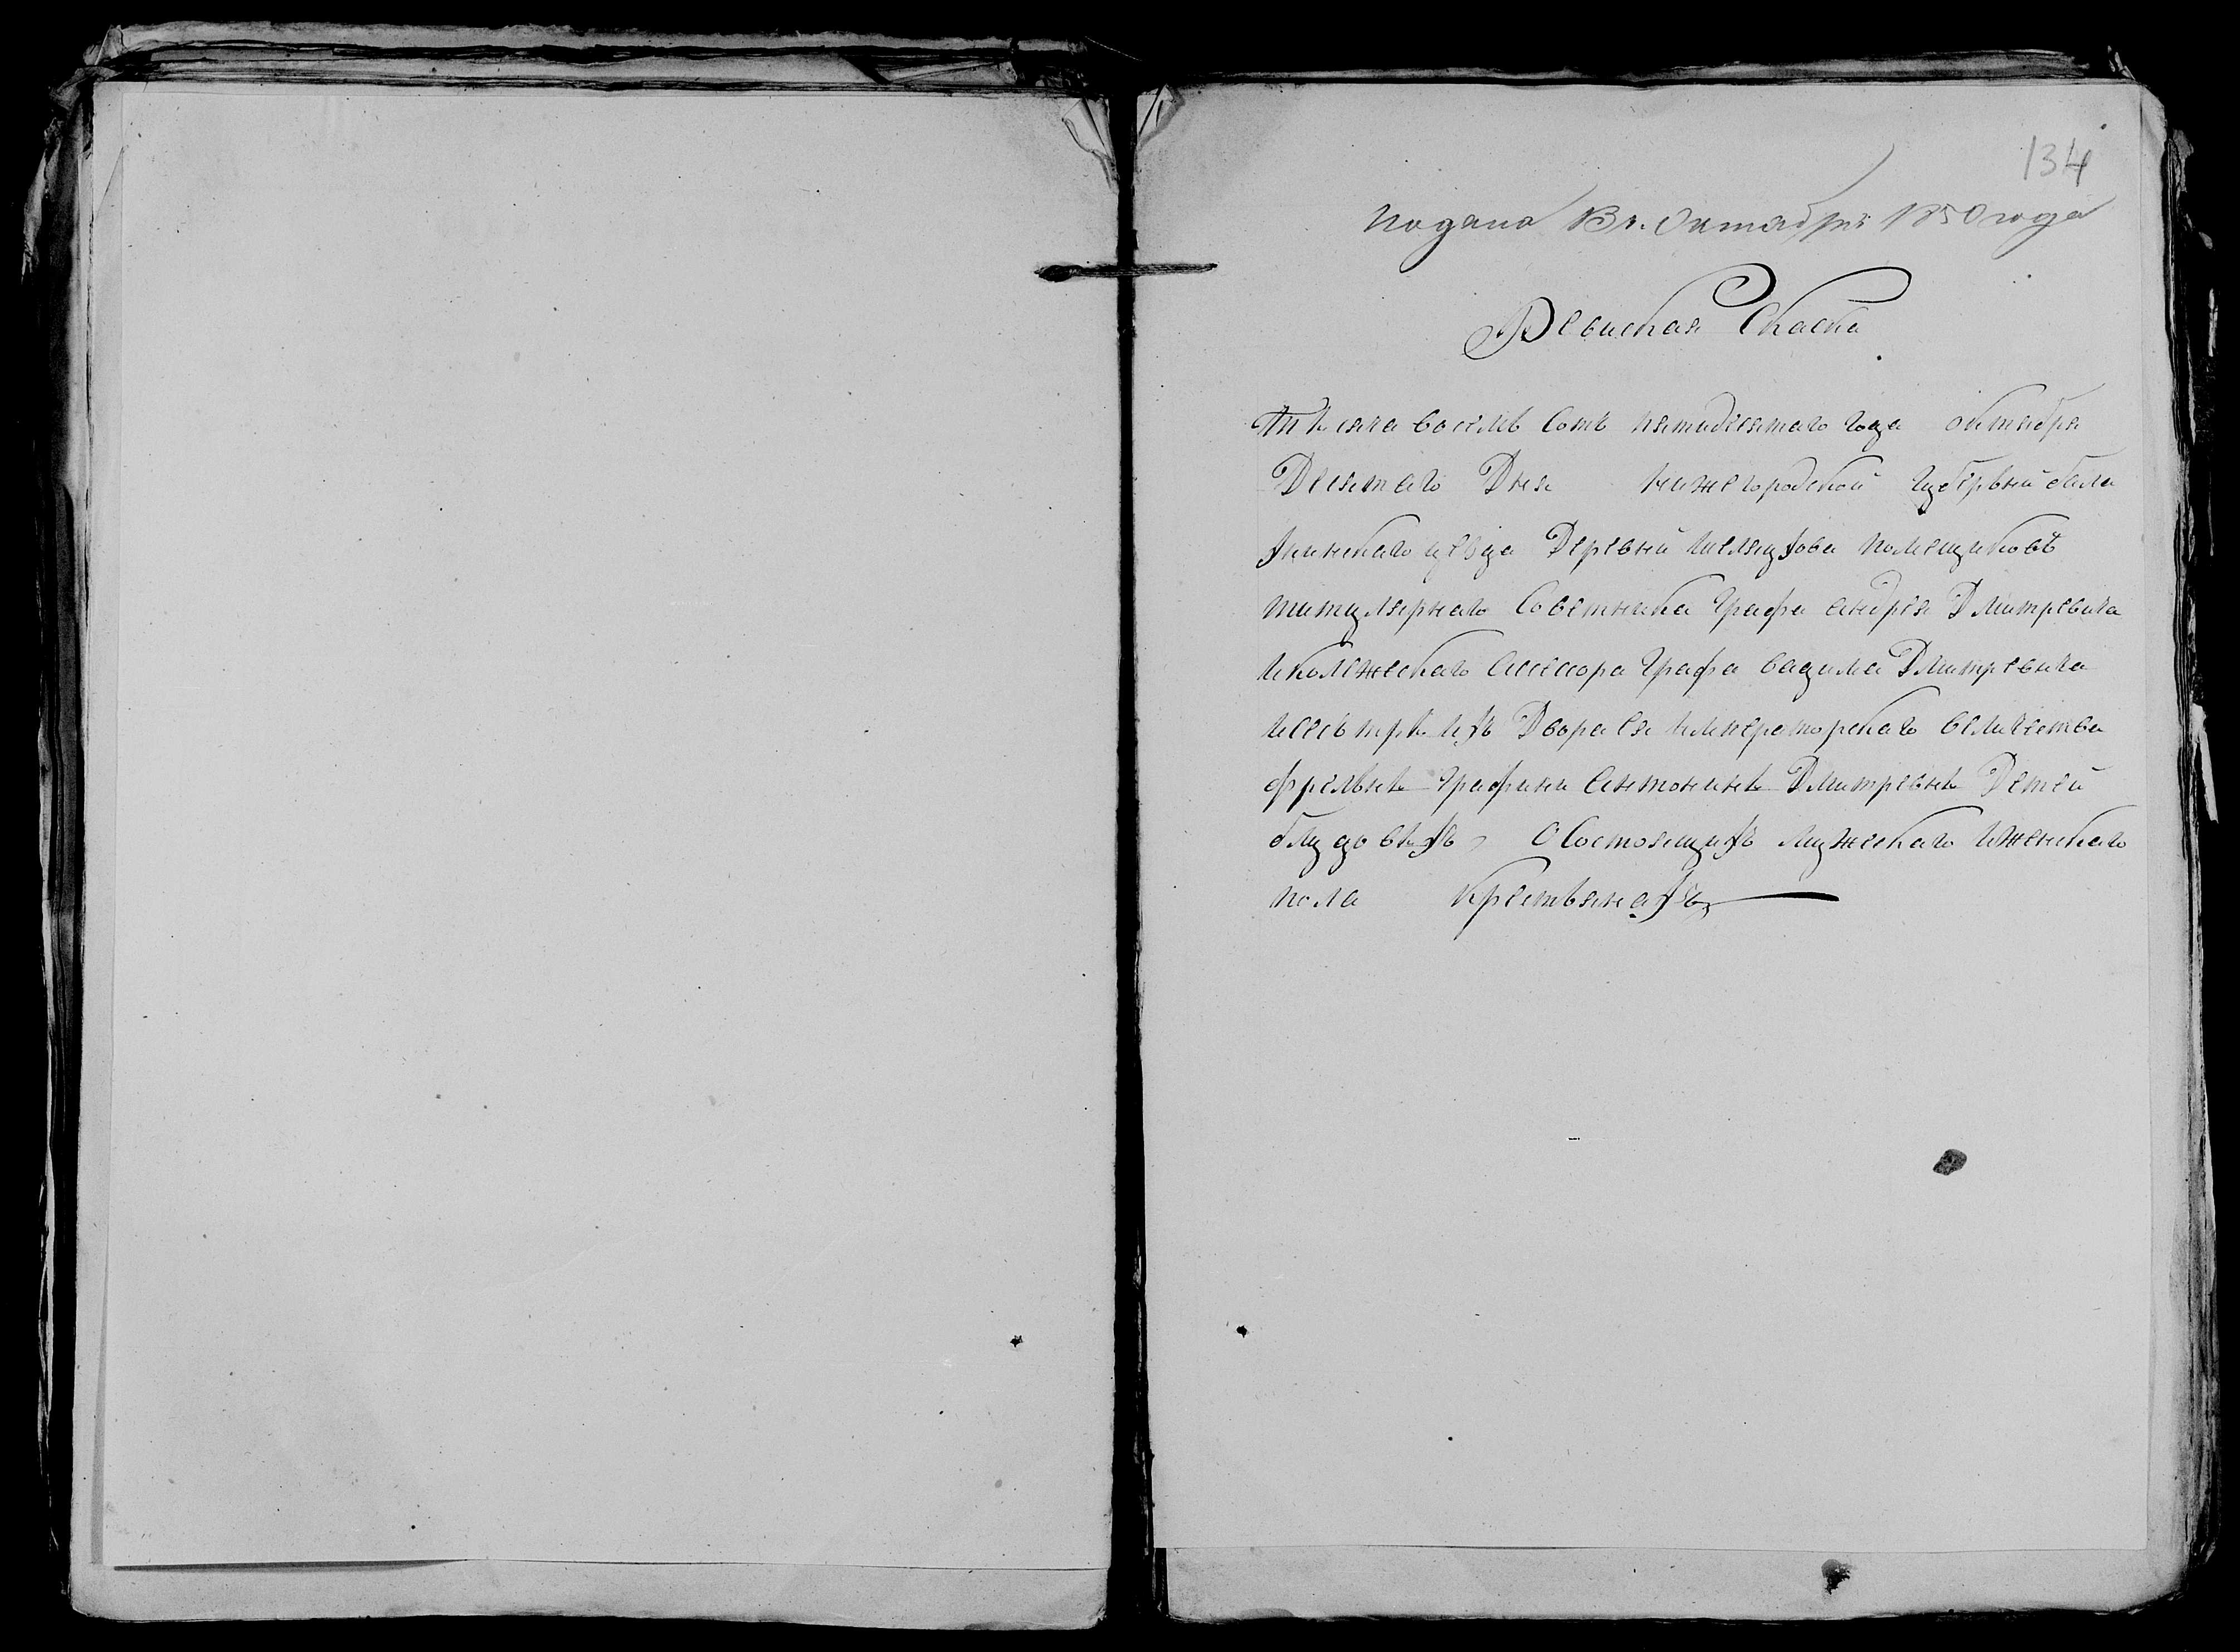 134
подана 13 г. Октября 1850 года
Ревиская Скаска
Тысяча восемь Сотъ пятидесятаго года октября
Десятаго Дня нижегородской губерьнй бала
хнинскаго уезда Деревнй помещиковъ
титулярнаго Советника Графа андрея Дмитревича
иколежскаго асесора Графа вадима Дмитревича
исестры ихъ Двора Ея императорскаго величества
фрельны Графини антонины Дмитревны Детей
блудовыхъ, О Состоящихъ мужескаго иженскаго
пола крестьянахъ